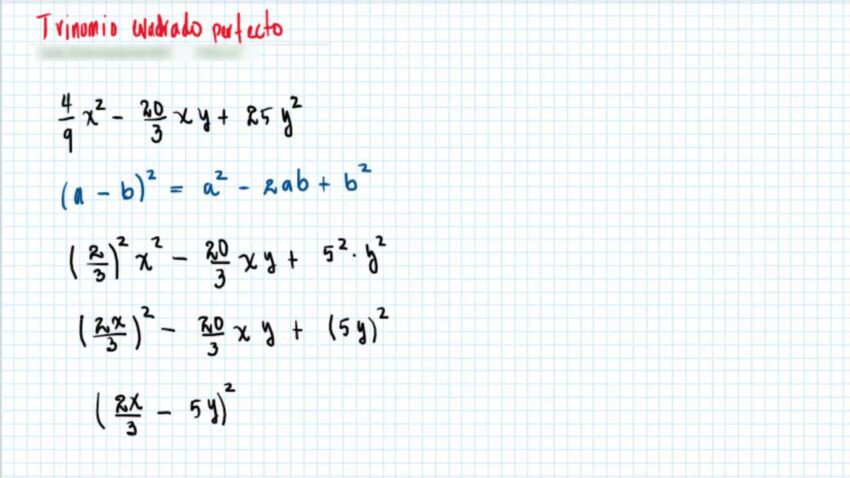 Trinomio cuadrado perfecto
4/9 x² - 20/3 xy + 25y²
(a - b)² = a² - 2ab + b²
(2/3)² x² - 20/3 xy + 5² · y²
(2x/3)² - 20/3 xy + (5y)²
(2x/3 - 5y)²